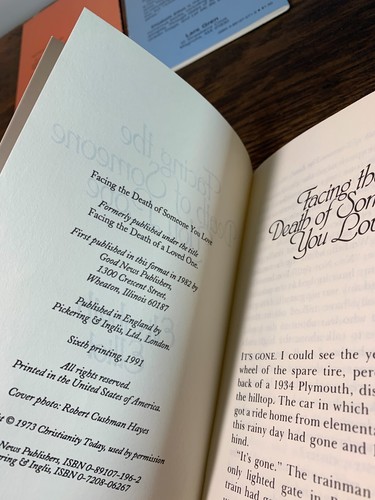 Facing the Death of Someone You Love
Formerly published under the title
Facing the Death of a Loved One.
First published in this format in 1982 by
Good News Publishers,
1300 Crescent Street,
Wheaton, Illinois 60187
Published in England by
Pickering & Inglis, Ltd., London.
Sixth printing, 1991
All rights reserved.
Printed in the United States of America.
Cover photo: Robert Cushman Hayes
© 1973 Christianity Today, used by permission
News Publishers, ISBN 0-89107-196-2
ering & Inglis, ISBN 0-7208-06267
Facing the
Death of Som
You Lov
IT'S GONE. I could see the ye
wheel of the spare tire, per
back of a 1934 Plymouth, dis
the hilltop. The car in which
got a ride home from elementa
this rainy day had gone and l
hind.
"It's gone." The trainman
only lighted gate in Penn
train had g